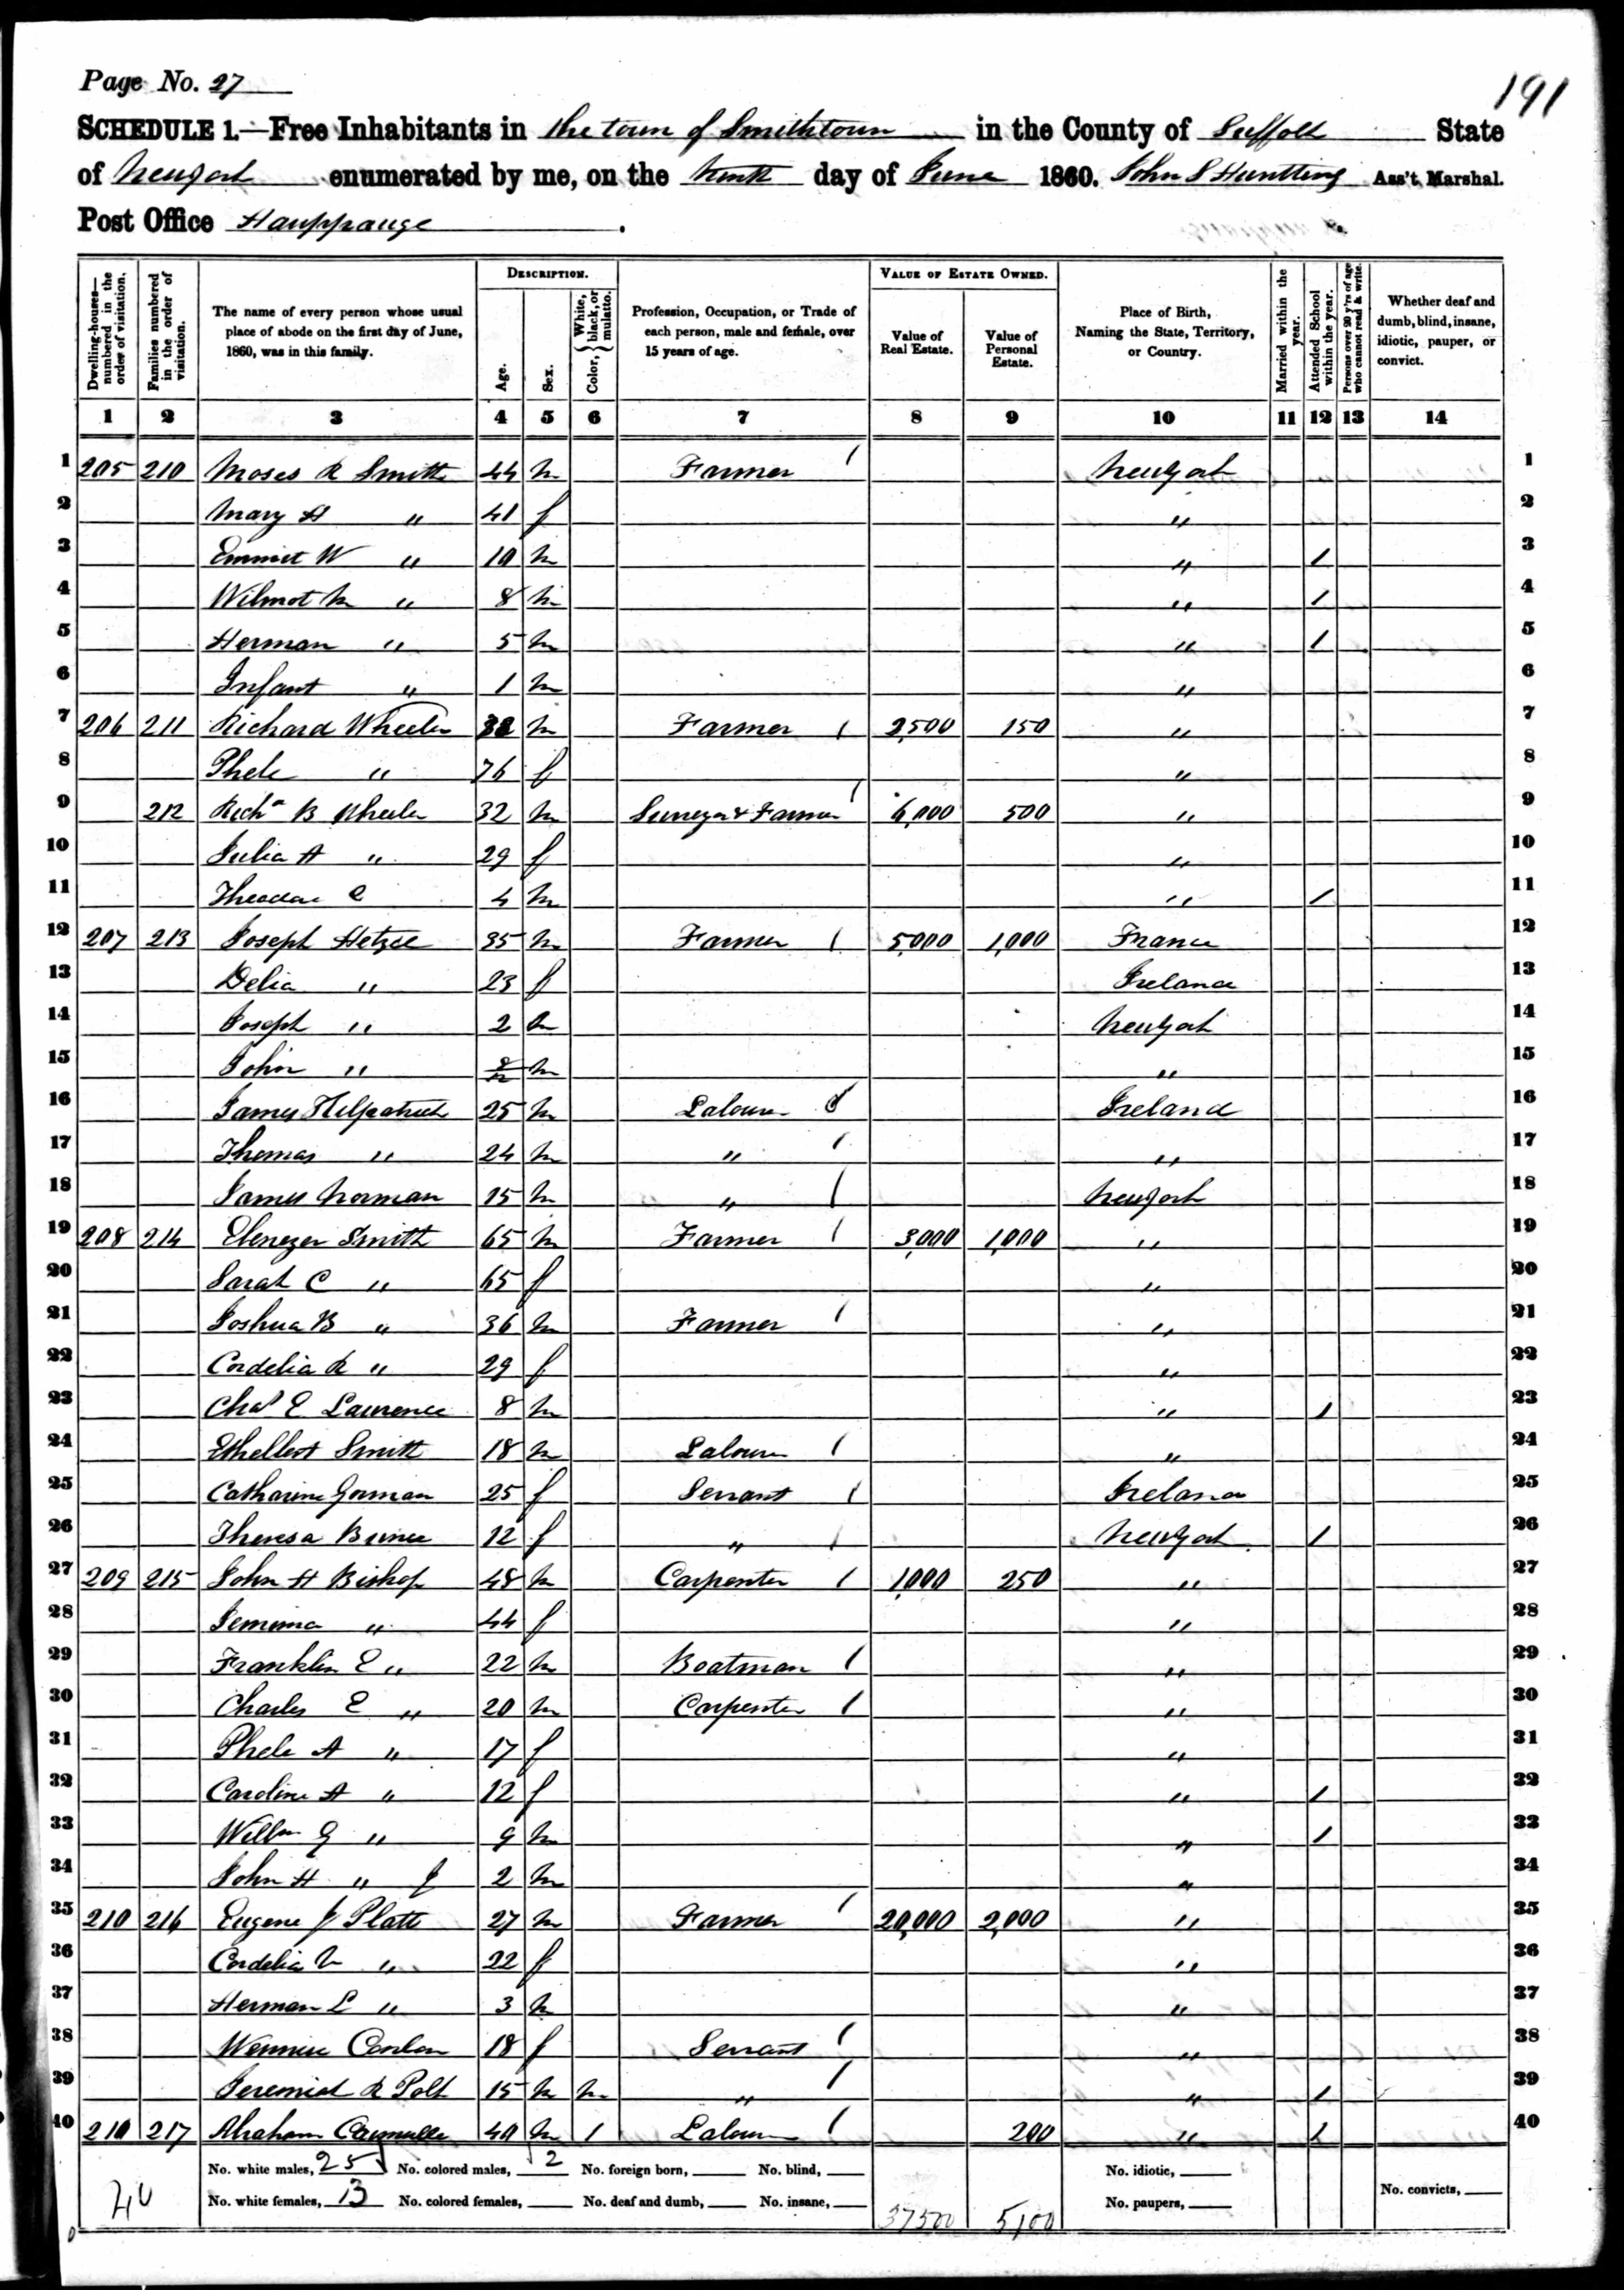 Page No. 27
191
SCHEDULE 1.—Free Inhabitants in the town of Smithtown in the County of Suffolk State
of New York enumerated by me, on the tenth day of June 1860. John S Huntting Ass't Marshal.
Post Office Hauppauge.
Dwelling-houses—numbered in the order of visitation.
Families numbered in the order of visitation.
The name of every person whose usual place of abode on the first day of June, 1860, was in this family.
DESCRIPTION.
Age.
Sex.
Color, { White, black, or mulatto.
Profession, Occupation, or Trade of each person, male and female, over 15 years of age.
VALUE OF ESTATE OWNED.
Value of Real Estate.
Value of Personal Estate.
Place of Birth, Naming the State, Territory, or Country.
Married within the year.
Attended School within the year.
Persons over 20 y'rs of age who cannot read & write.
Whether deaf and dumb, blind, insane, idiotic, pauper, or convict.
1 2 3 4 5 6 7 8 9 10 11 12 13 14
1 205 210 Moses R Smith 44 m Farmer / New York 1
2 Mary H " 41 f " 2
3 Emmit W " 10 m " / 3
4 Wilmot M " 8 m " / 4
5 Herman " 5 m " / 5
6 Infant " 1 m " 6
7 206 211 Richard Wheeler m Farmer / 2,500 150 " 7
8 Phele " 76 f " 8
9 212 Richd B Wheeler 32 m Surveyor & Farmer / 6,000 500 " 9
10 Julia A " 29 f " 10
11 Theodore C 4 m " / 11
12 207 213 Joseph Hetzel 35 m Farmer / 5,000 1,000 France 12
13 Delia " 23 f Ireland 13
14 Joseph " 2 m New York 14
15 John " m " 15
16 James Kilpatrick 25 m Labourer Ireland 16
17 Thomas " 24 m " / " 17
18 James Norman 15 m " / New York 18
19 208 214 Ebenezer Smith 65 m Farmer / 3,000 1,000 " 19
20 Sarah C " 65 f " 20
21 Joshua B " 36 m Farmer / " 21
22 Cordelia R " 29 f " 22
23 Chas E Lawrence 8 m " / 23
24 Ethelbert Smith 18 m Labourer / " 24
25 Catharine Gorman 25 f Servant / Ireland 25
26 Theresa Brince 12 f " / New York / 26
27 209 215 John H Bishop 48 m Carpenter / 1,000 250 " 27
28 Jemima " 44 f " 28
29 Franklin E " 22 m Boatman / " 29
30 Charles E " 20 m Carpenter / " 30
31 Phele A " 17 f " 31
32 Caroline A " 12 f " / 32
33 Willm G " 9 m " / 33
34 John H " J 2 m " 34
35 210 216 Eugene J Platt 27 m Farmer / 20,000 2,000 " 35
36 Cordelia " 22 f " 36
37 Herman L " 3 m " 37
38 Wennie Conlon 18 f Servant / " 38
39 Jeremiah R Polt 15 m m " / " / 39
40 210 217 Abraham 40 m 1 Labourer / 200 " 1 40
No. white males, 25 No. colored males, 2 No. foreign born, No. blind, No. idiotic,
No. white females, 13 No. colored females, No. deaf and dumb, No. insane, No. paupers, No. convicts,
40
37500 5100